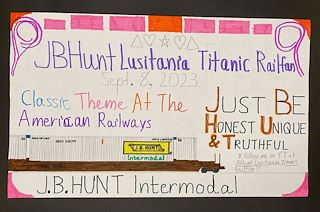 JBHunt Lusitania Titanic Railfan
Sept. 8, 2023
Classic Theme At The
American Railways
JUST BE
HONEST UNIQUE
& TRUTHFUL
J.B. HUNT
Intermodal
J.B. HUNT Intermodal